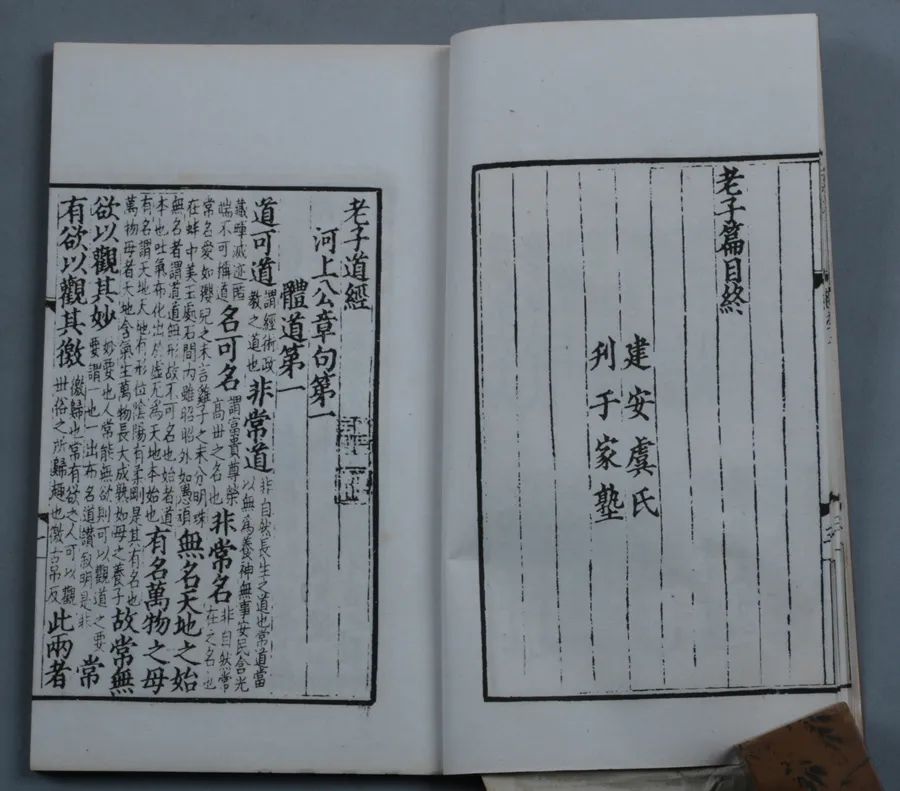 老子篇目終
建安虞氏
刊于家塾
老子道經
河上公章句第一
體道第一
道可道謂經術政教之道也非常道非自然長生之道也常道當以無為養神無事安民含光
藏暉滅迹匿端不可稱道名可名謂富貴尊榮高世之名也非常名非自然常在之名也
常名愛如嬰兒之未言雞子之未分明珠在蚌中美玉處石間内雖昭昭外如愚頑無名天地之始
無名者謂道道無形故不可名也始者道本也吐氣布化出於虛无為天地本始也有名萬物之母
有名謂天地天地有形位陰陽有柔剛是其有名也萬物母者天地含氣生萬物長大成熟如母之養子故常無
欲以觀其妙妙要也人常能無欲則可以觀道之要要謂一也一出布名道讚叙明是非常
有欲以觀其徼徼歸也常有欲之人可以觀世俗之所歸趣也徼古弔反此兩者